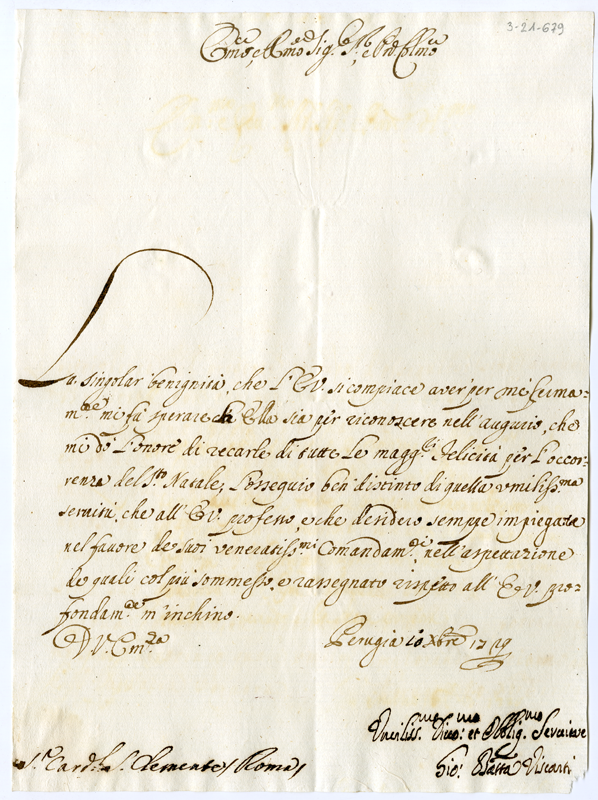 3-21-679
Em.mo e R.mo Sig.re P.rone Col.mo
La singolar benignità, che l'E.V. si compiace aver per me ferma=
m.te mi fà sperare ch'Ella sia per riconoscere nell'augurio, che
mi dò l'onore di recarle di tutte le magg.ri felicità per l'occor=
renza del S.to Natale, l'ossequio ben distinto di quella umiliss.ma
servitù, che all'E.V. professo, e che desidero sempre impiegata
nel favore de suoi veneratiss.mi Comandam.ti, nell'aspettazione
de quali col più sommesso, e rassegnato rispetto all'E.V. pro=
fondam.te m'inchino.
D.V.Em.za Perugia 20 Xbre 1729
Umiliss.mo Divo.mo et Obblig.mo Servitore
Gio: Batta Visconti
S.r Card.le S. Clemente / Roma /